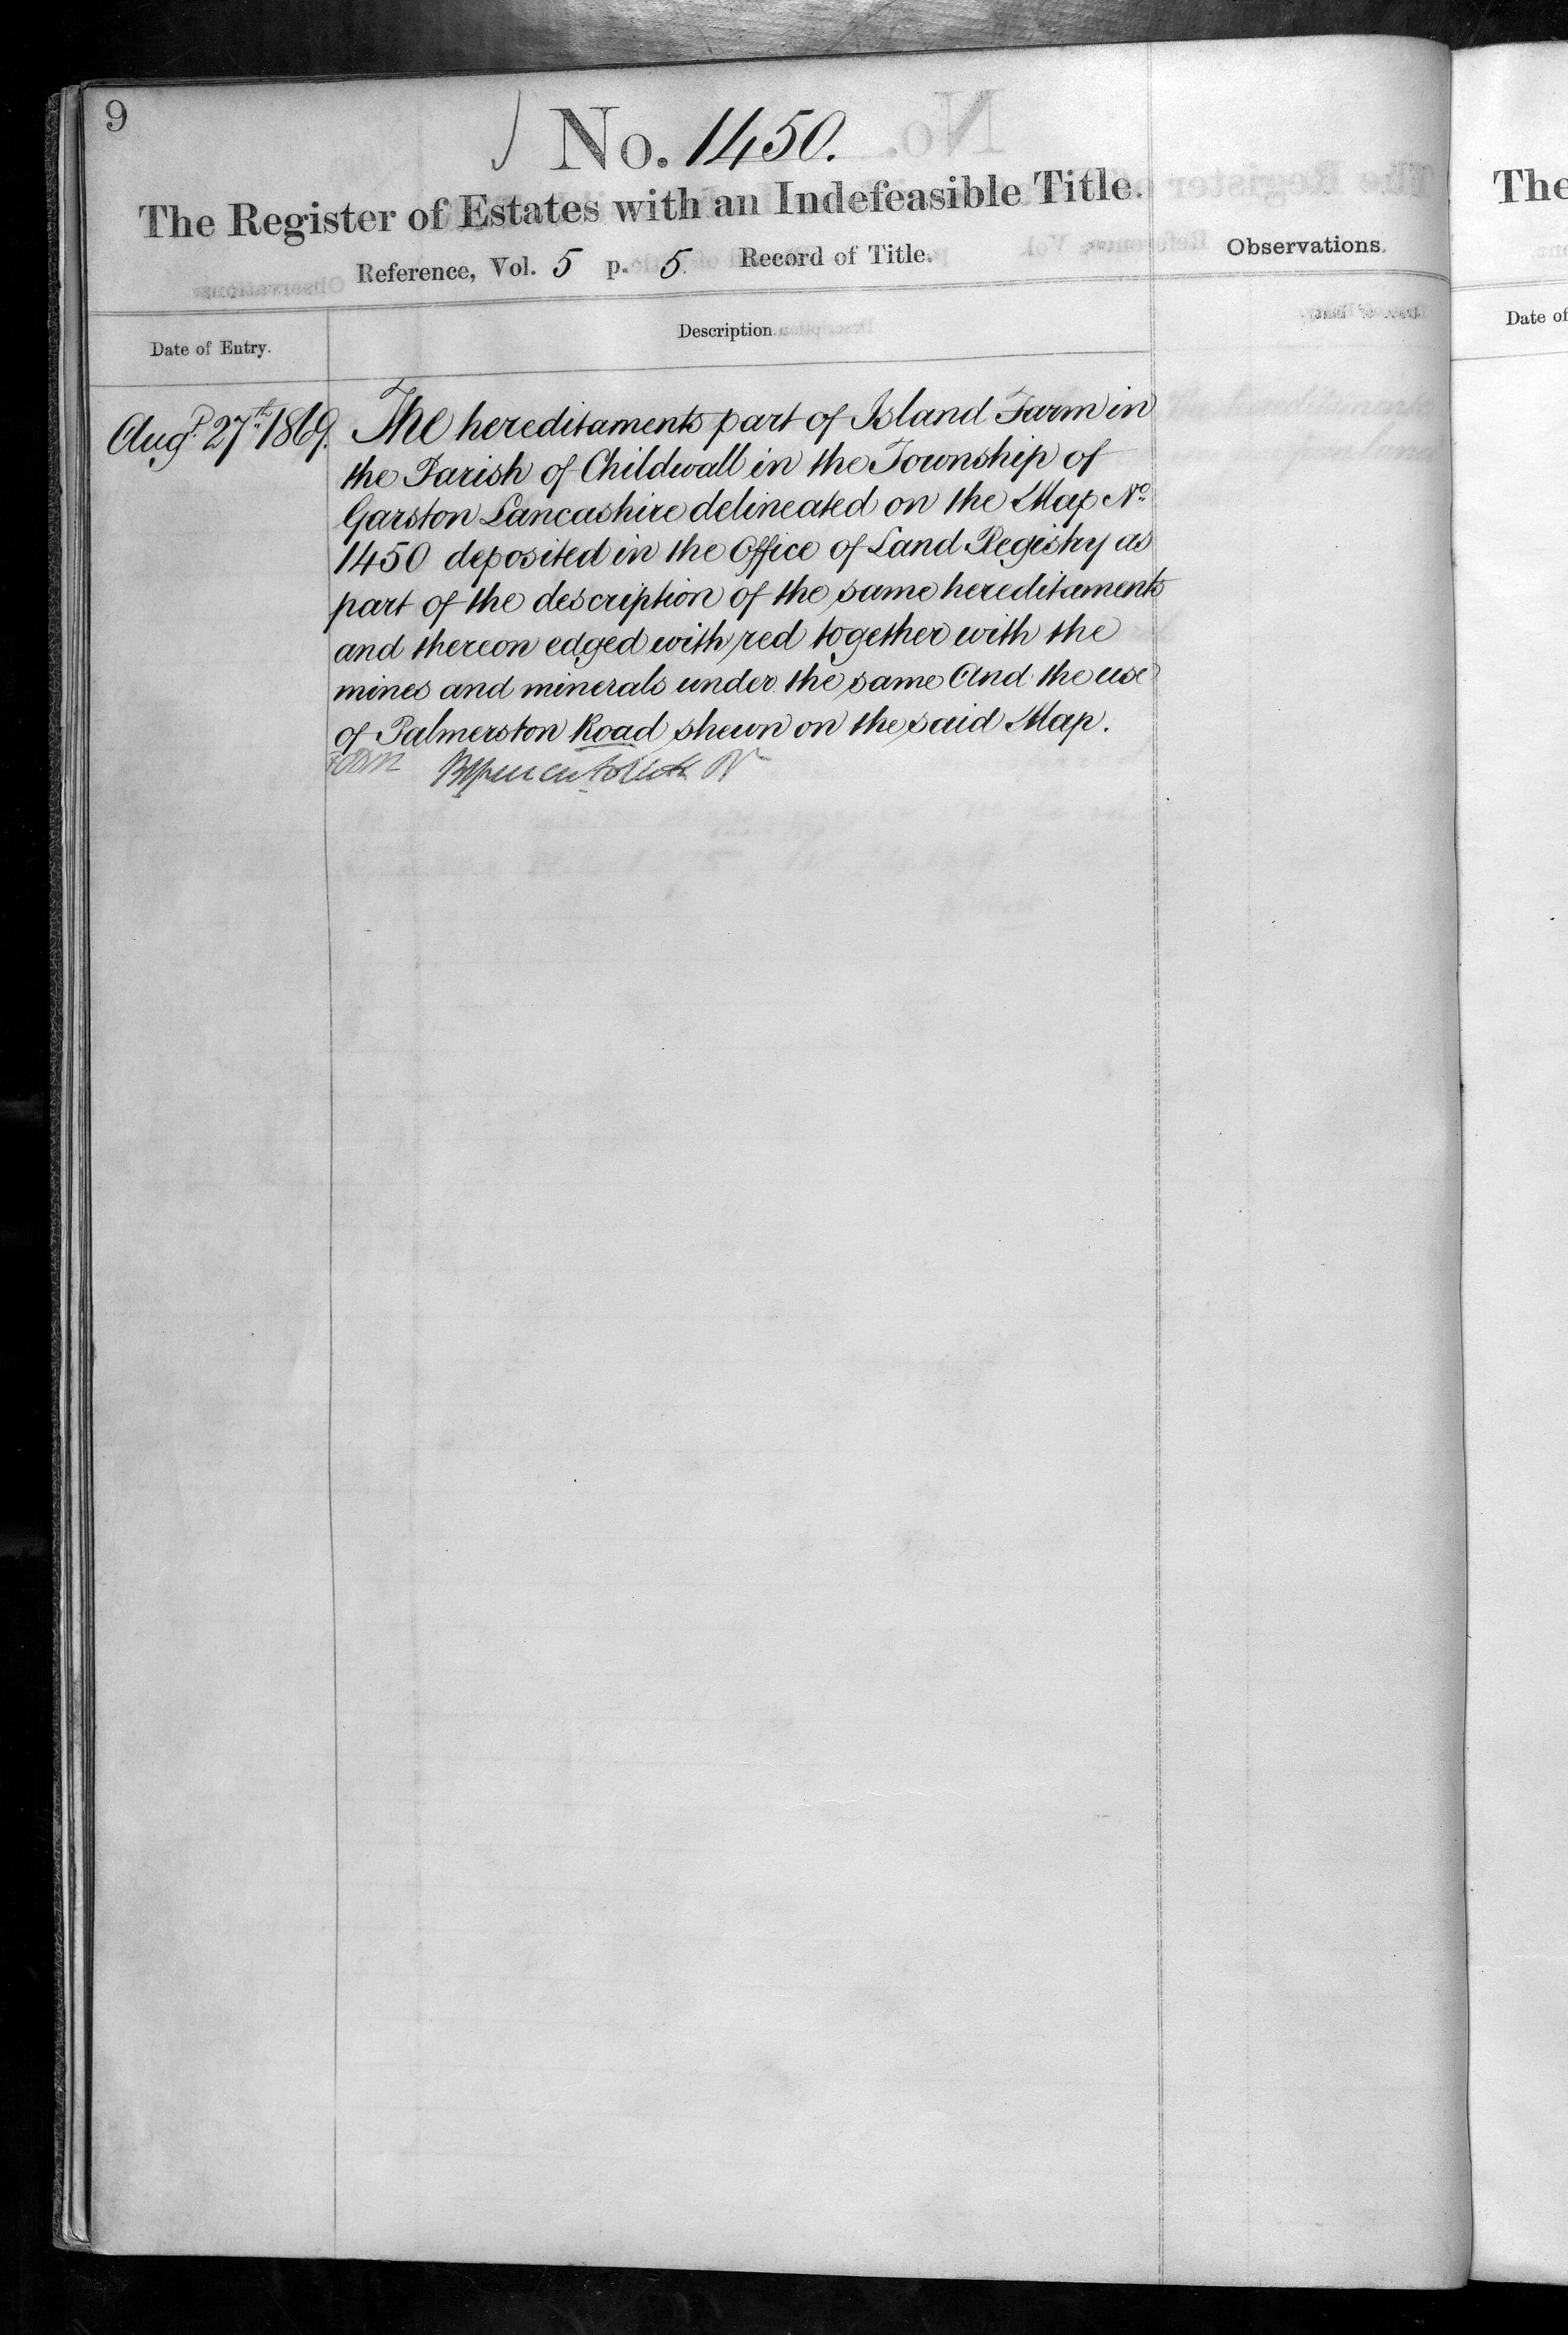 9
No. 1450.
The Register of Estates with an Indefeasible Title.
Reference, Vol. 5 p. 5. Record of Title.
Observations.
Date of Entry.
Description.
Augt. 27th 1869.
The hereditaments part of Island Farm in
the Parish of Childwall in the Township of
Garston Lancashire delineated on the Map No.
1450 deposited in the Office of Land Registry as
part of the description of the same hereditaments
and thereon edged with red together with the
mines and minerals under the same And the use
of Palmerston Road shewn on the said Map.
The
Date of